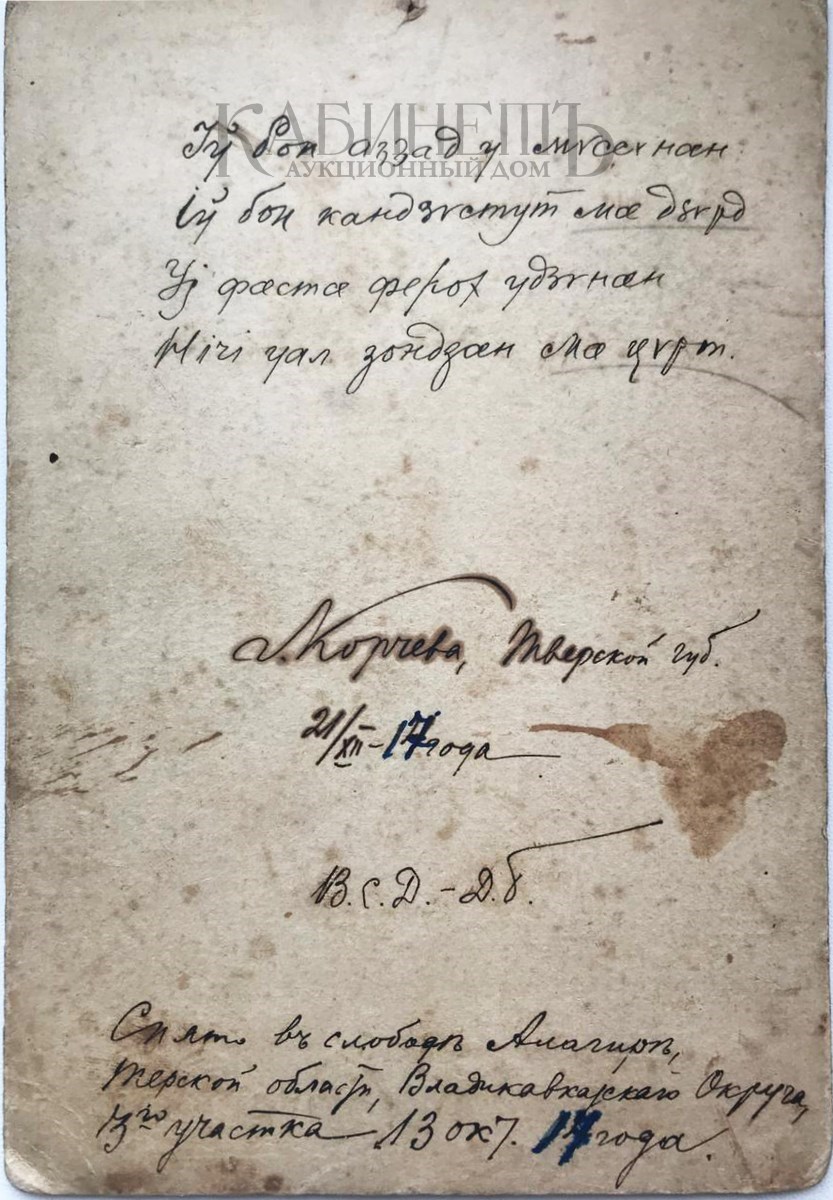 КАБИНЕТЪ
АУКЦИОННЫЙ ДОМ
Іў бон аззад у мѵсѵнӕн
Іў бон кандзѵстут мӕ дзѵрд
Уј фӕстӕ ферох удзѵнӕн
Нічі уал зондзӕн мӕ цѵрт.
г. Корчева, Тверской губ.
21/XII–17 года
В.С.Д.–Д.б.
Снято въ слободѣ Алагирѣ,
Терской области, Владикавказскаго Округа,
3го участка 13 окт. 17 года.